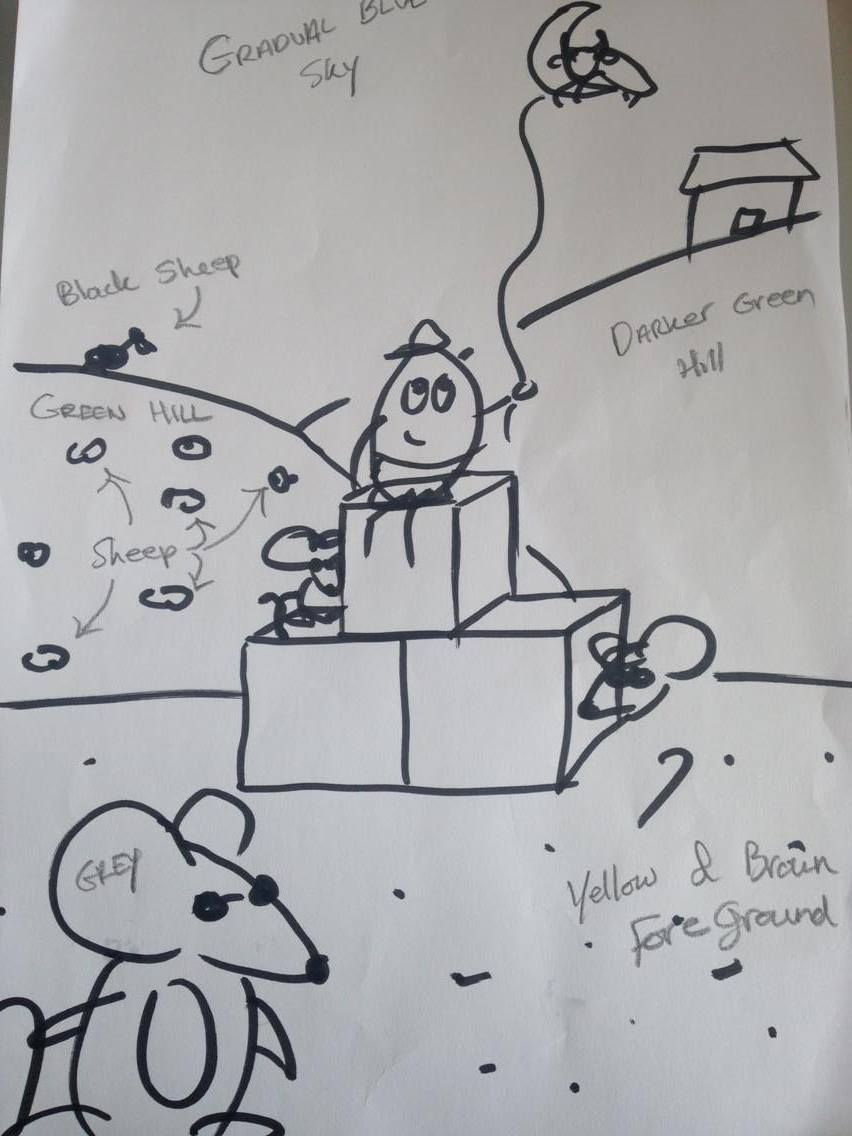 GRADUAL BLUE
SKY
Black Sheep
DARKER Green
Hill
GREEN HILL
Sheep
GREY
Yellow & Brown
ForeGround